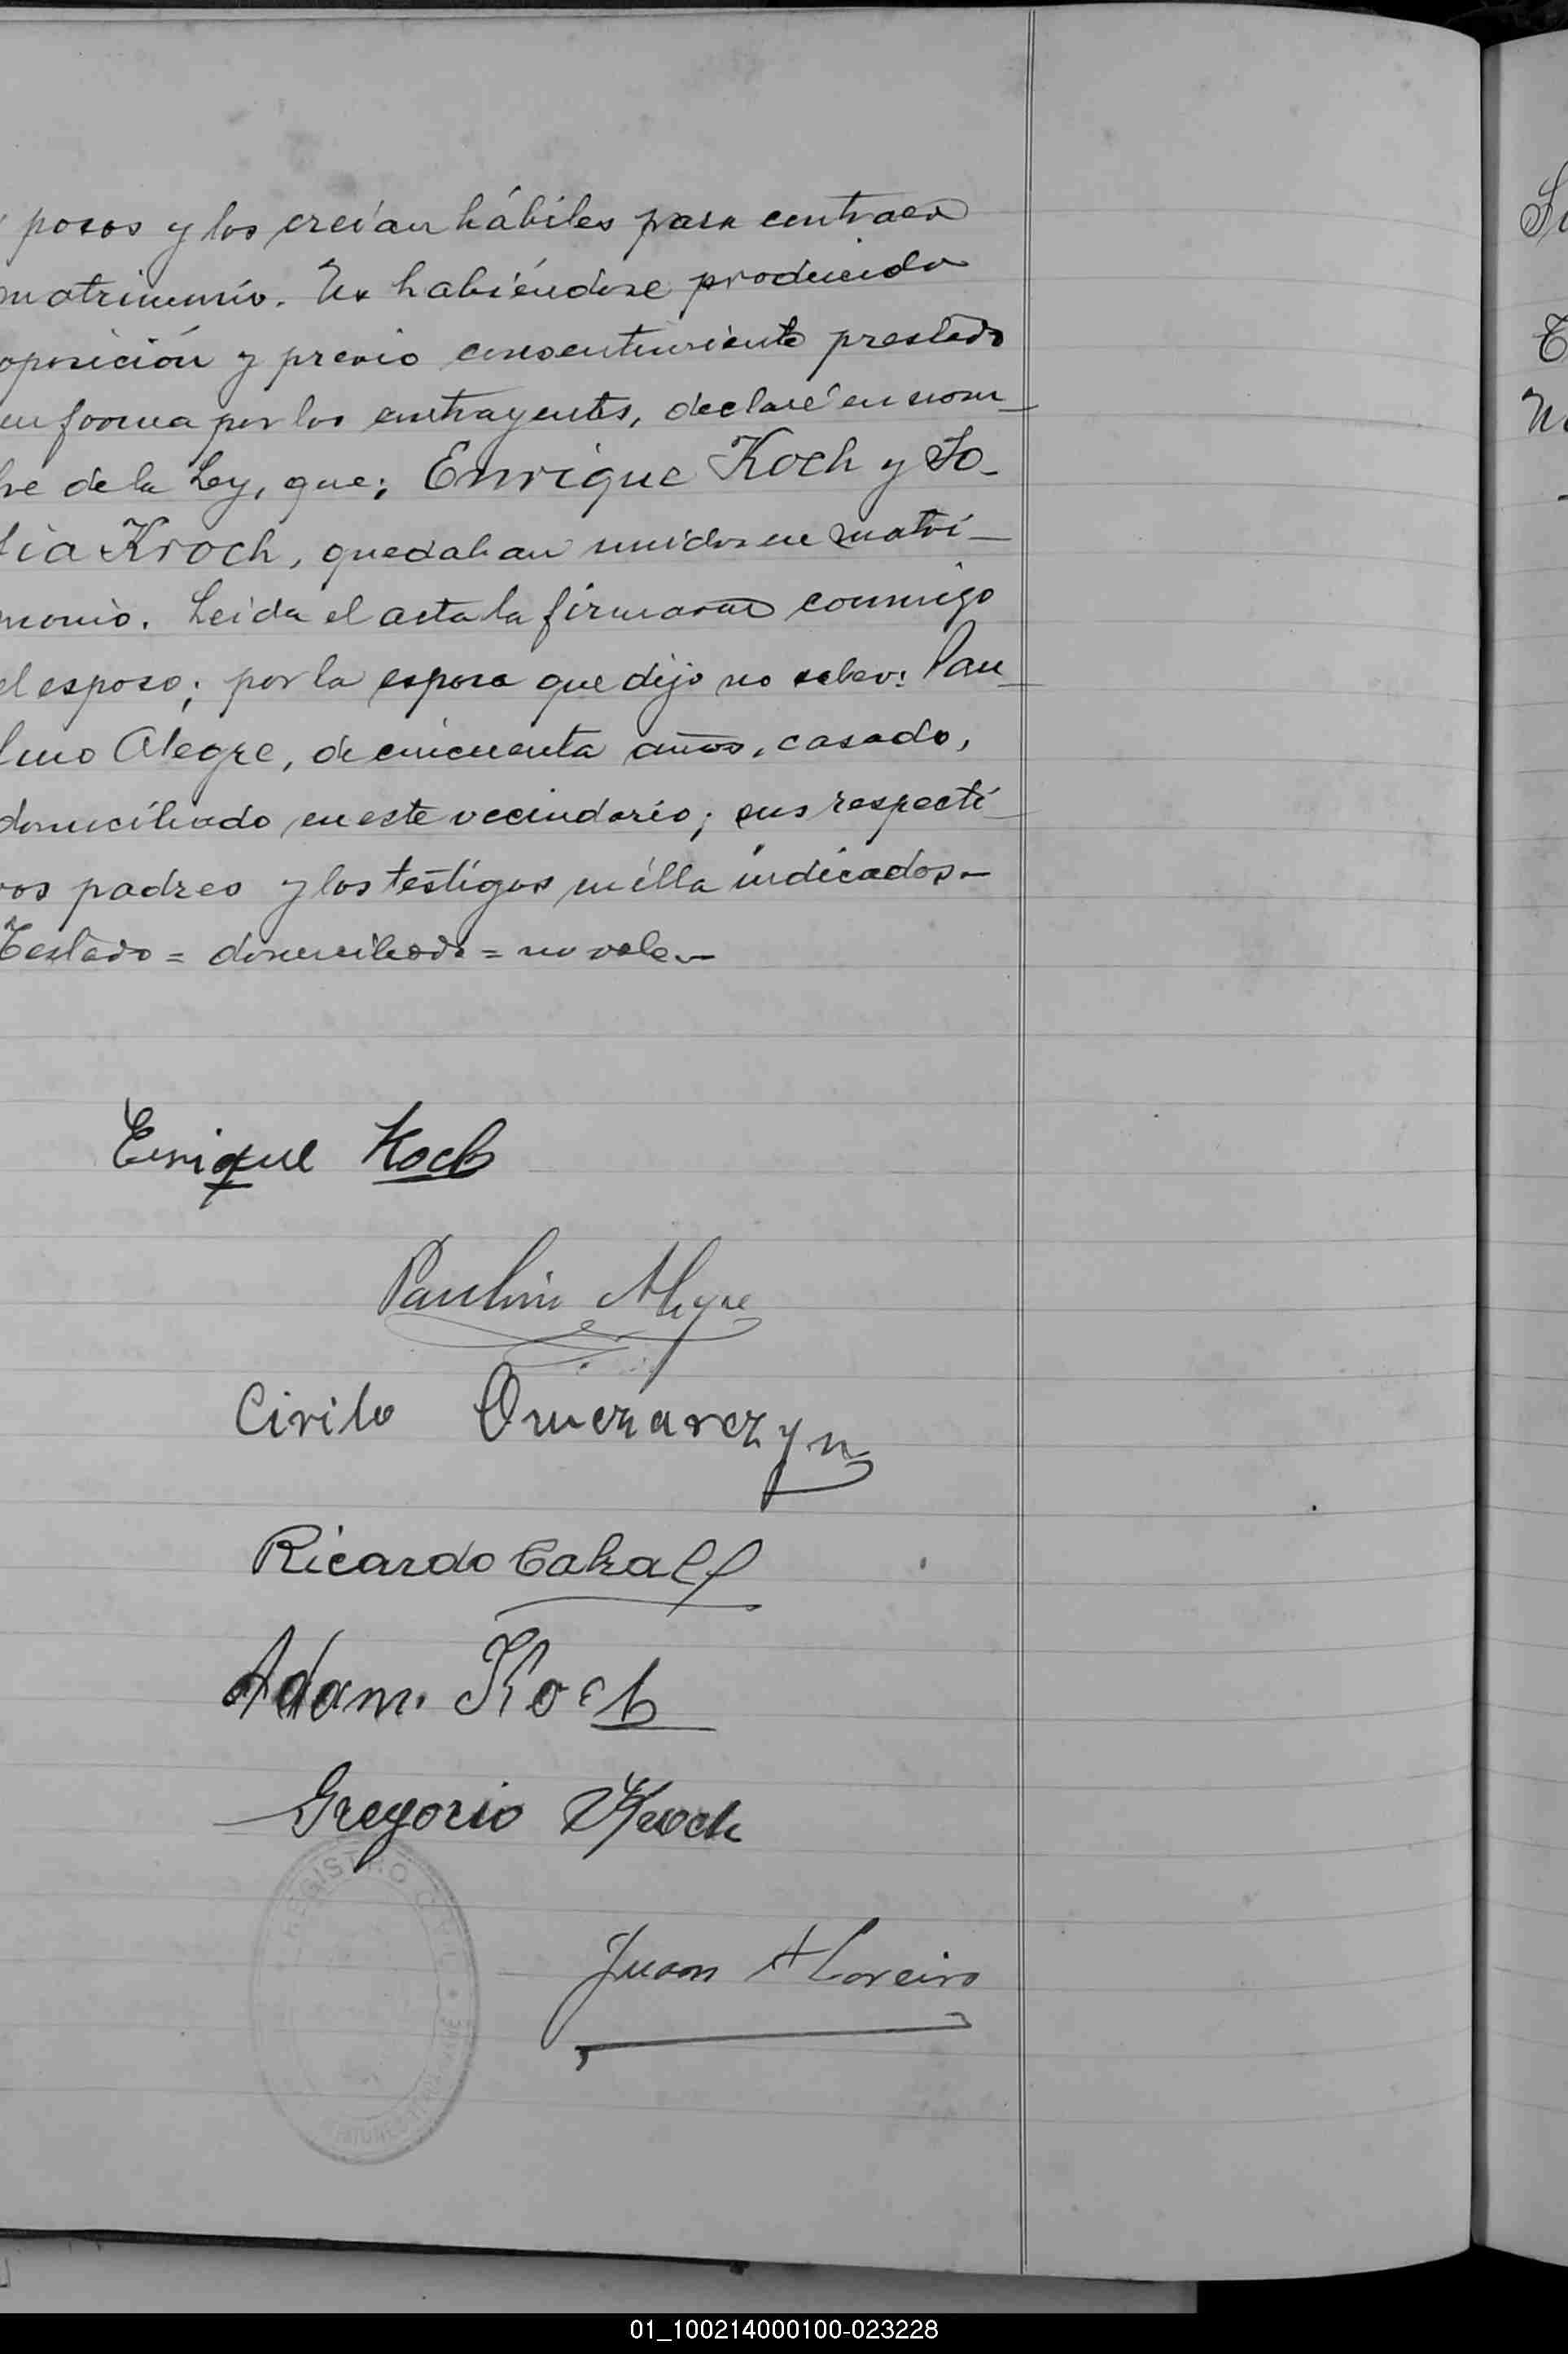 posos y los creían hábiles para contraer
matrimonio. No habiéndose producido
oposición y previo consentimiento prestado
en forma por los contrayentes, declaré en nom_
bre de la Ley, que; Enrique Koch y So_
fia Kroch, quedaban unidos en matri_
monio. Leida el acta la firmaron conmigo
el esposo; por la esposa que dijo no saber: Pau_
lino Alegre, de cincuenta años, casado,
domiciliado en este vecindario; sus respecti_
vos padres y los testigos en ella indicados.-
Testado = domiciliado = no vale.-
Enrique Koch
Paulino Alegre
Cirilo
Ricardo
Adam. Koch
Gregorio Kroch
REGISTRO CIVIL
Juan
01_100214000100-023228